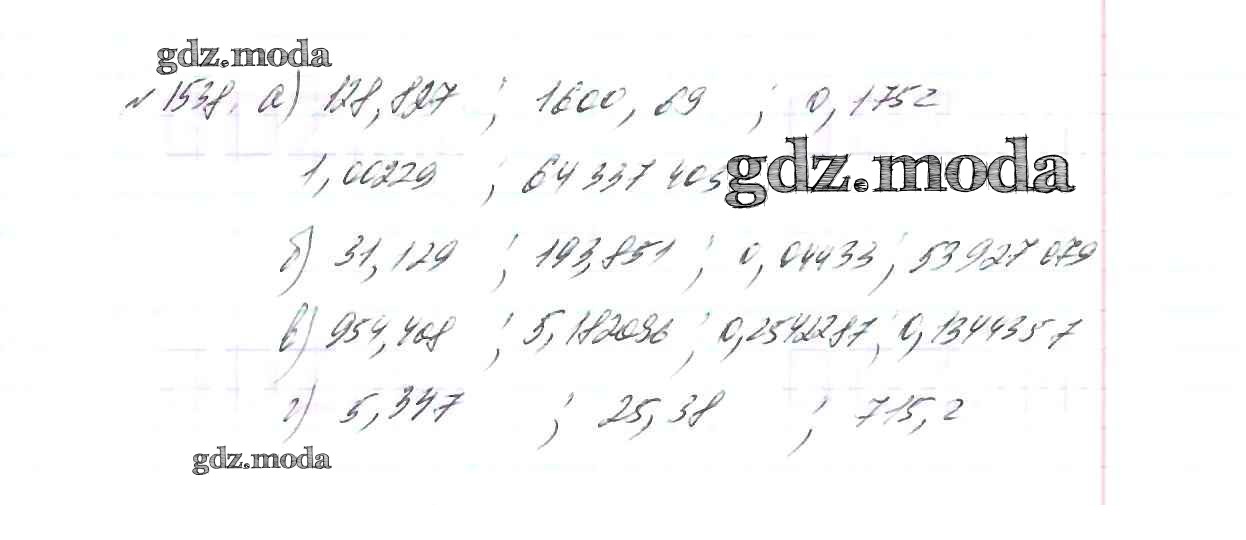 gdz.moda
№ 1538. а) 128,827 ; 1600,69 ; 0,1752
1,00229 ; 64 337 403
gdz.moda
б) 31,129 ; 193,851 ; 0,04433 ; 53 927 079
в) 954,408 ; 5,182096 ; 0,2542287 ; 0,1344357
г) 5,347 ; 25,38 ; 715,2
gdz.moda